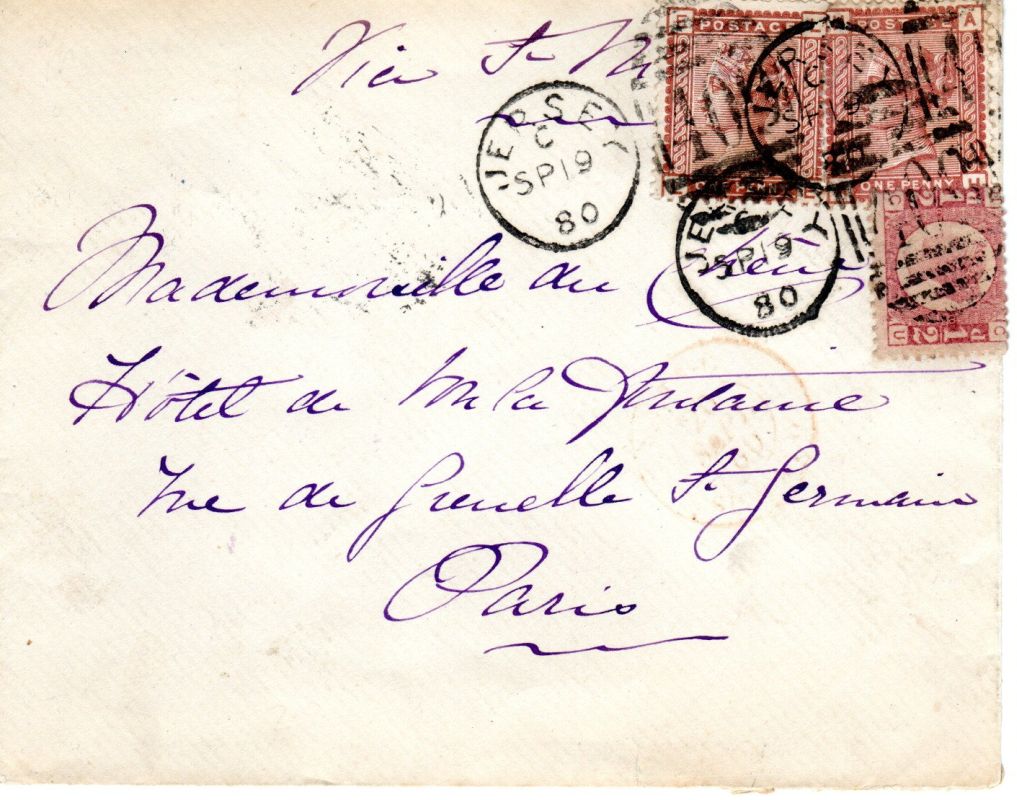 Via St M
JERSEY
C
SP 19
80
E POSTAGE
ONE PENNY E
POSTAGE A
ONE PENNY E
JERSEY
C
SP 19
80
JERSEY
C
SP 19
80
Mademoiselle du
Hôtel de
rue de Grenelle St Germain
Paris